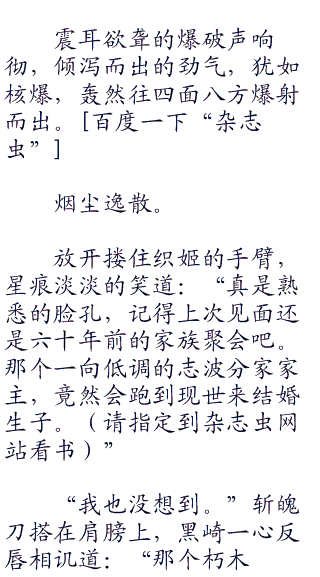 震耳欲聋的爆破声响
彻，倾泻而出的劲气，犹如
核爆，轰然往四面八方爆射
而出。[百度一下“杂志
虫”]
烟尘逸散。
放开搂住织姬的手臂，
星痕淡淡的笑道：“真是熟
悉的脸孔，记得上次见面还
是六十年前的家族聚会吧。
那个一向低调的志波分家家
主，竟然会跑到现世来结婚
生子。（请指定到杂志虫网
站看书）”
“我也没想到。”斩魄
刀搭在肩膀上，黑崎一心反
唇相讥道：“那个朽木